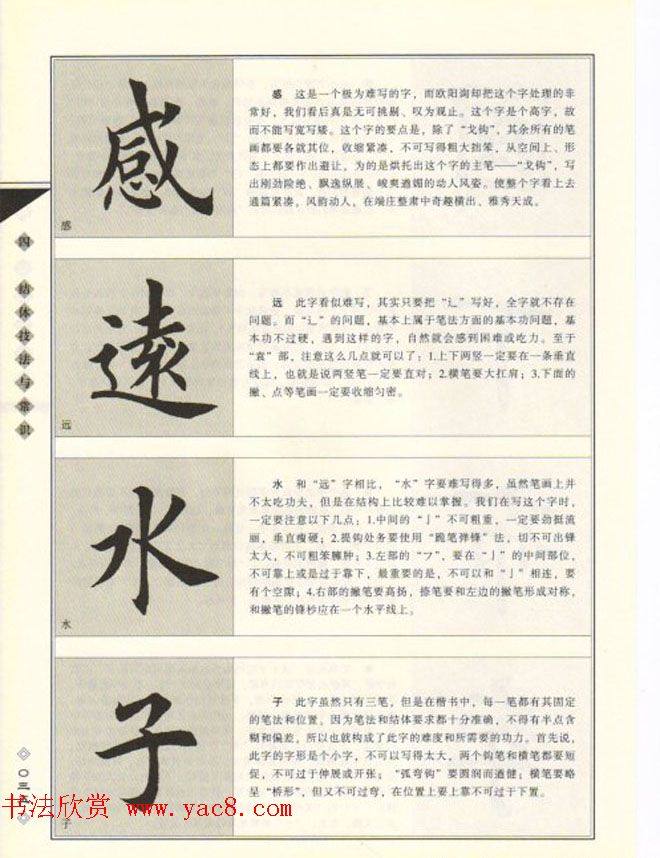 感
感
感 这是一个极为难写的字，而欧阳询却把这个字处理的非
常好，我们看后真是无可挑剔、叹为观止。这个字是个高字，故
而不能写宽写矮。这个字的要点是，除了“戈钩”，其余所有的笔
画都要各就其位，收缩紧凑，不可写得粗大拙笨，从空间上、形
态上都要作出避让，为的是烘托出这个字的主笔——“戈钩”，写
出刚劲险绝、飘逸纵展、峻爽遒媚的动人风姿。使整个字看上去
通篇紧凑，风韵动人，在端庄整肃中奇趣横出、雅秀天成。
四 结体技法与常识
遠
远
远 此字看似难写，其实只要把“辶”写好，全字就不存在
问题。而“辶”的问题，基本上属于笔法方面的基本功问题，基
本功不过硬，遇到这样的字，自然就会感到困难或吃力。至于
“袁”部，注意这么几点就可以了：1.上下两竖一定要在一条垂直
线上，也就是说两竖笔一定要直对；2.横笔要大扛肩；3.下面的
撇、点等笔画一定要收缩匀密。
水
水
水 和“远”字相比，“水”字要难写得多，虽然笔画上并
不太吃功夫，但是在结构上比较难以掌握。我们在写这个字时，
一定要注意以下几点：1.中间的“亅”不可粗重，一定要劲挺流
丽，垂直瘦硬；2.提钩处务要使用“跪笔弹锋”法，切不可出锋
太大，不可粗笨臃肿；3.左部的“フ”，要在“亅”的中间部位，
不可靠上或是过于靠下，最重要的是，不可以和“亅”相连，要
有个空隙；4.右部的撇笔要高扬，捺笔要和左边的撇笔形成对称，
和撇笔的锋杪应在一个水平线上。
子
子
子 此字虽然只有三笔，但是在楷书中，每一笔都有其固定
的笔法和位置，因为笔法和结体要求都十分准确，不得有半点含
糊和偏差，所以也就构成了此字的难度和所需要的功力。首先说，
此字的字形是个小字，不可以写得太大，两个钩笔和横笔都要短
促，不可过于伸展或开张；“弧弯钩”要圆润而遒健；横笔要略
呈“桥形”，但又不可过弯，在位置上要上靠不可过于下置。
书法欣赏 www.yac8.com